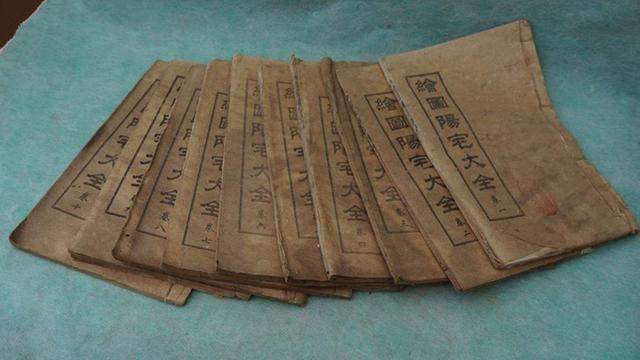 繪圖陽宅大全 卷一
繪圖陽宅大全 卷二
大全 卷三
陽宅大全 卷四
陽宅大
圖陽宅大全 卷六
陽宅大全 卷七
大全 卷八
大全 卷十